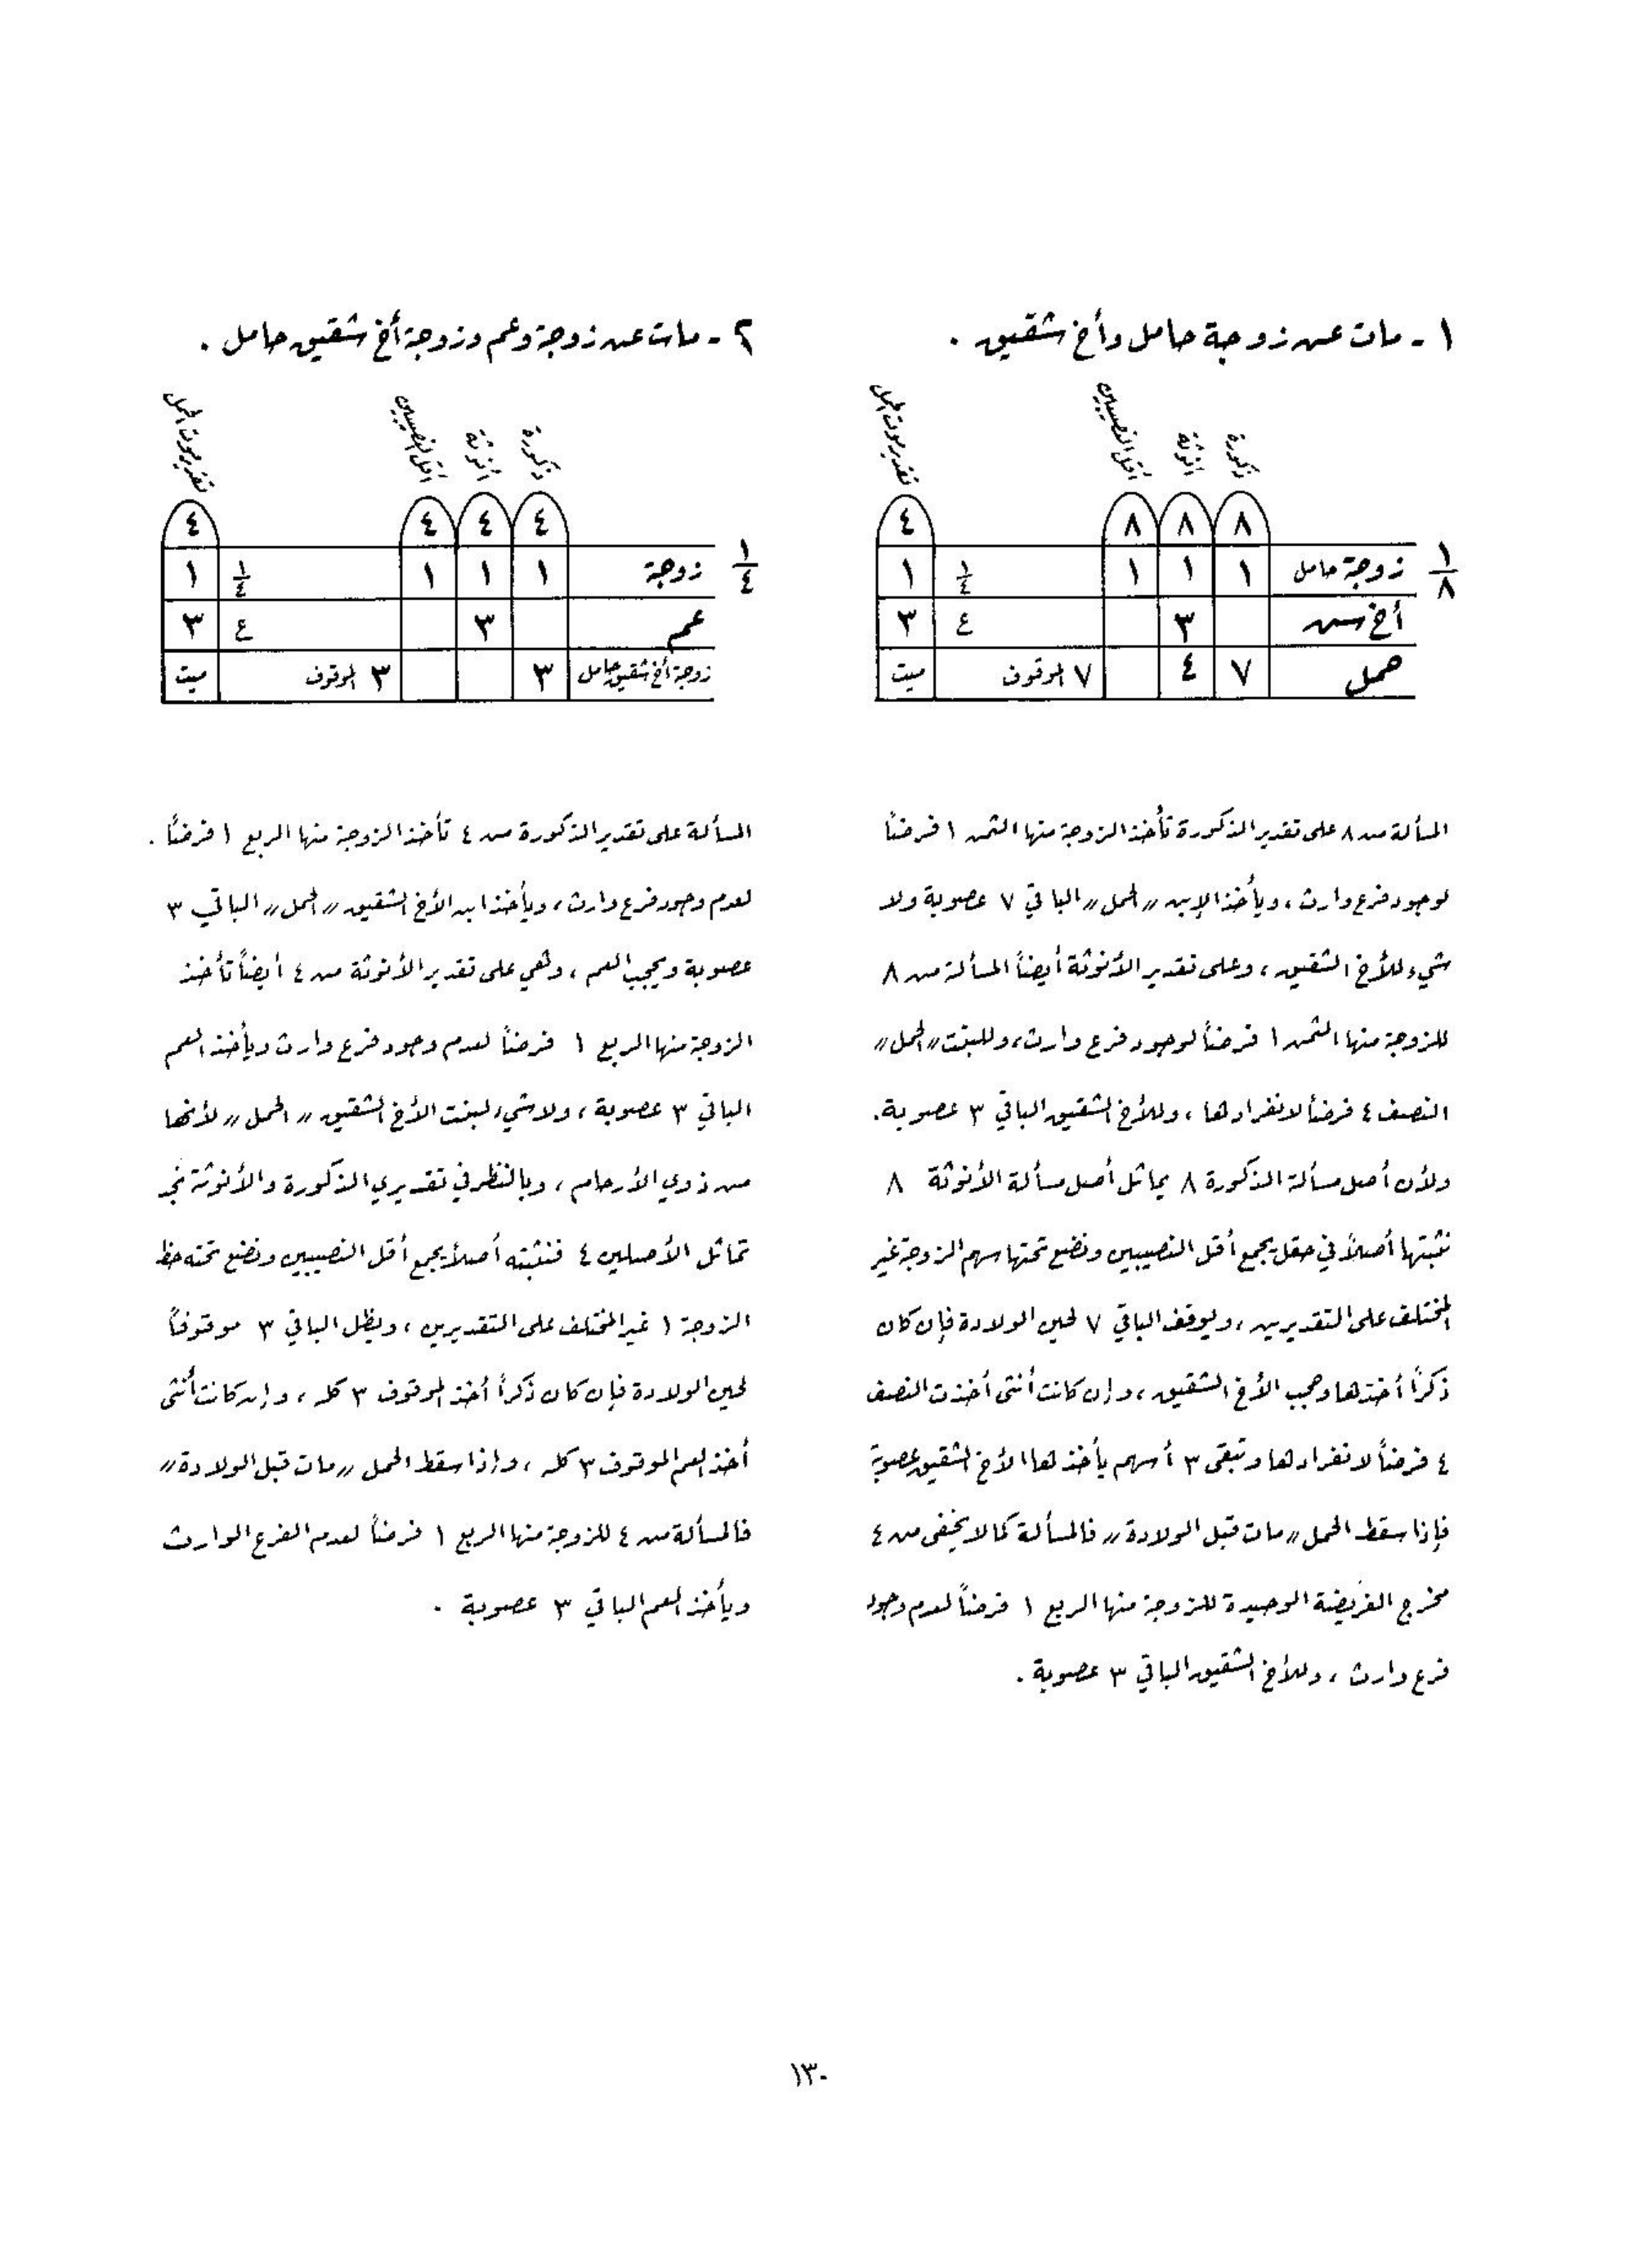 ١ - مات عن زوجة حامل وأخ شقيق .
ذكورة
أنوثة
أقل النصيبين
تقدير موت الحمل
٨ ٨ ٨ ٤
١/٨ زوجة حامل ١ ١ ١ ١/٤ ١
أخ ش ٣ ع ٣
حمل ٧ ٤ ٧ الموقوف ميت
المسألة من ٨ على تقدير الذكورة تأخذ الزوجة منها الثمن ١ فرضاً
لوجود فرع وارث ، ويأخذ الإبن " الحمل " الباقي ٧ عصوبة ولا
شيء للأخ الشقيق ، وعلى تقدير الأنوثة أيضاً المسألة من ٨
للزوجة منها الثمن ١ فرضاً لوجود فرع وارث ، وللبنت " الحمل "
النصف ٤ فرضاً لانفرادها ، وللأخ الشقيق الباقي ٣ عصوبة .
ولأن أصل مسألة الذكورة ٨ يماثل أصل مسألة الأنوثة ٨
نثبتها أصلاً في حقل يجمع أقل النصيبين ونضع تحتها سهم الزوجة غير
المختلف على التقديرين ، ويوقف الباقي ٧ لحين الولادة فإن كان
ذكراً أخذها وحجب الأخ الشقيق ، وإن كانت أنثى أخذت النصف
٤ فرضاً لانفرادها وتبقى ٣ أسهم يأخذها الأخ الشقيق عصوبة
فإذا سقط الحمل " مات قبل الولادة " فالمسألة كما لا يخفى من ٤
مخرج الفريضة الوحيدة للزوجة منها الربع ١ فرضاً لعدم وجود
فرع وارث ، وللأخ الشقيق الباقي ٣ عصوبة .
٢ - مات عن زوجة وعم وزوجة أخ شقيق حامل .
ذكورة
أنوثة
أقل النصيبين
تقدير موت الحمل
٤ ٤ ٤ ٤
١/٤ زوجة ١ ١ ١ ١/٤ ١
عم ٣ ع ٣
زوجة أخ شقيق حامل ٣ ٣ الموقوف ميت
المسألة على تقدير الذكورة من ٤ تأخذ الزوجة منها الربع ١ فرضاً .
لعدم وجود فرع وارث ، ويأخذ ابن الأخ الشقيق " الحمل " الباقي ٣
عصوبة ويحجب العم ، وهي على تقدير الأنوثة من ٤ أيضاً تأخذ
الزوجة منها الربع ١ فرضاً لعدم وجود فرع وارث ويأخذ العم
الباقي ٣ عصوبة ، ولا شيء لبنت الأخ الشقيق " الحمل " لأنها
من ذوي الأرحام ، وبالنظر في تقديري الذكورة والأنوثة نجد
تماثل الأصلين ٤ فنثبته أصلاً يجمع أقل النصيبين ونضع تحته حظ
الزوجة ١ غير المختلف على التقديرين ، ويظل الباقي ٣ موقوفاً
لحين الولادة فإن كان ذكراً أخذ الموقوف ٣ كله ، وإن كانت أنثى
أخذ العم الموقوف ٣ كله ، وإذا سقط الحمل " مات قبل الولادة "
فالمسألة من ٤ للزوجة منها الربع ١ فرضاً لعدم الفرع الوارث
ويأخذ العم الباقي ٣ عصوبة .
١٣٠